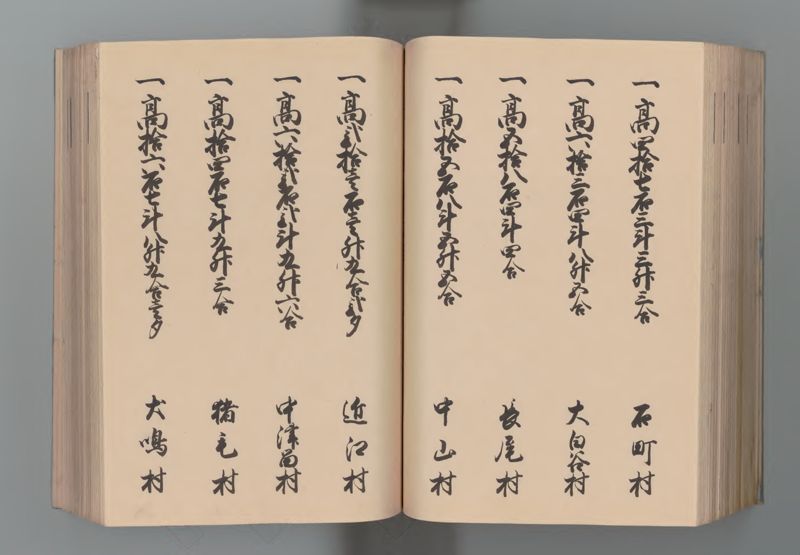 一高四拾七石三斗三升三合 石町村
一高六拾三石四斗八升五合 大白谷村
一高五拾八石四斗四合 長尾村
一高拾五石八斗五升五合 中山村
一高弐拾壱石壱升九合弐夕 近江村
一高六拾弐石弐斗九升六合 中津留村
一高拾四石七斗九升三合 猪毛村
一高拾六石七斗八升九合壱夕 犬鳴村